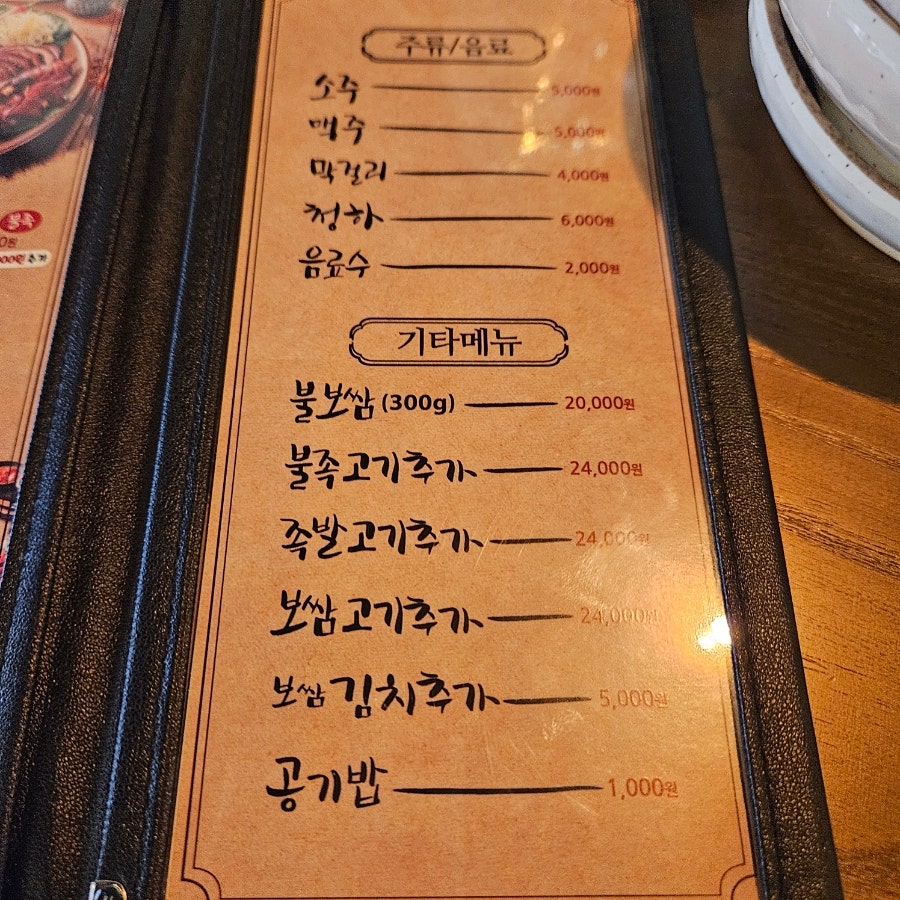 불족
000원 추가
주류/음료
소주 5,000원
맥주 5,000원
막걸리 4,000원
청하 6,000원
음료수 2,000원
기타메뉴
불보쌈 (300g) 20,000원
불족고기추가 24,000원
족발고기추가 24,000원
보쌈고기추가 24,000원
보쌈김치추가 5,000원
공기밥 1,000원